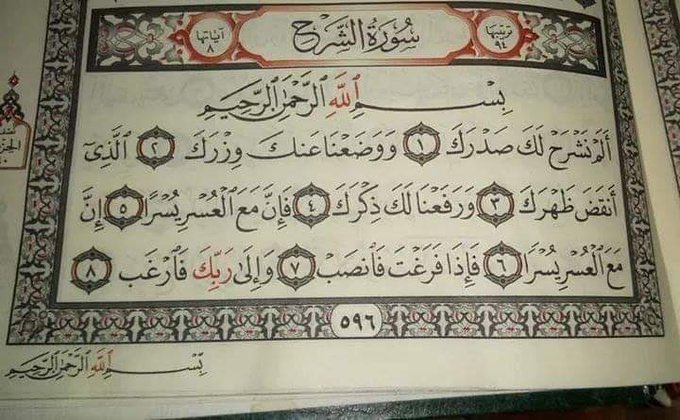 ترتيبها ٩٤ سُورَةُ الشَّرْحِ آياتها ٨
بِسْمِ ٱللَّهِ ٱلرَّحْمَٰنِ ٱلرَّحِيمِ
أَلَمْ نَشْرَحْ لَكَ صَدْرَكَ ١ وَوَضَعْنَا عَنكَ وِزْرَكَ ٢ ٱلَّذِىٓ
أَنقَضَ ظَهْرَكَ ٣ وَرَفَعْنَا لَكَ ذِكْرَكَ ٤ فَإِنَّ مَعَ ٱلْعُسْرِ يُسْرًا ٥ إِنَّ
مَعَ ٱلْعُسْرِ يُسْرًا ٦ فَإِذَا فَرَغْتَ فَٱنصَبْ ٧ وَإِلَىٰ رَبِّكَ فَٱرْغَب ٨
٥٩٦
بِسْمِ ٱللَّهِ ٱلرَّحْمَٰنِ ٱلرَّحِيمِ